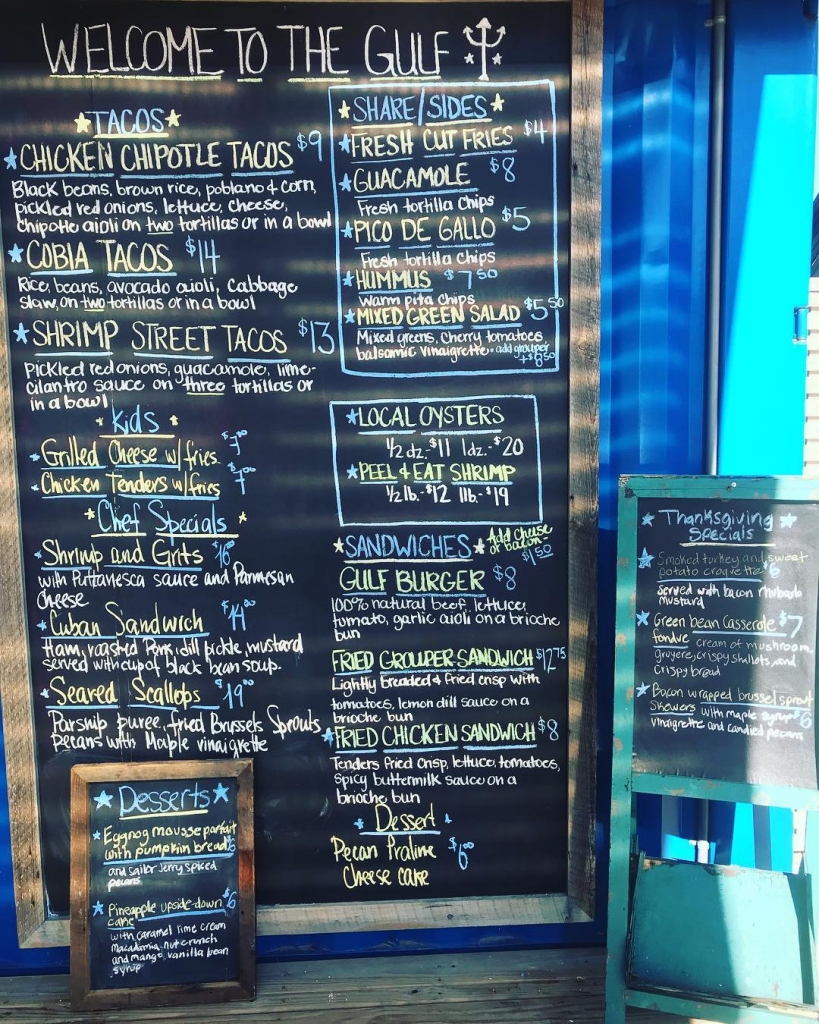 WELCOME TO THE GULF
TACOS
CHICKEN CHIPOTLE TACOS $9
Black beans, brown rice, poblano & corn,
pickled red onions, lettuce, cheese,
chipotle aioli on two tortillas or in a bowl
COBIA TACOS $14
Rice, beans, avocado aioli, cabbage
slaw, on two tortillas or in a bowl
SHRIMP STREET TACOS $13
pickled red onions, guacamole, lime-
cilantro sauce on three tortillas or
in a bowl
Kids
Grilled Cheese w/ fries $7.00
Chicken Tenders w/ fries $7.00
Chef Specials
Shrimp and Grits $16.00
with Puttanesca sauce and Parmesan
Cheese
Cuban Sandwich $14.00
Ham, roasted Pork, dill pickle, mustard
served with cup of black bean soup.
Seared Scallops $19.00
Parsnip puree, fried Brussels Sprouts,
pecans with Maple vinaigrette
SHARE/SIDES
FRESH CUT FRIES $4
GUACAMOLE $8
Fresh tortilla chips
PICO DE GALLO $5
Fresh tortilla chips
HUMMUS $7.50
Warm pita chips
MIXED GREEN SALAD $5.50
Mixed greens, cherry tomatoes,
balsamic vinaigrette - add grouper
+$8.50
LOCAL OYSTERS
1/2 dz.-$11 1dz.-$20
PEEL & EAT SHRIMP
1/2 lb.-$12 1lb.-$19
SANDWICHES Add cheese
or bacon-
$1.50
GULF BURGER $8
100% natural beef, lettuce,
tomato, garlic aioli on a brioche
bun
FRIED GROUPER SANDWICH $12.75
Lightly breaded & fried crisp with
tomatoes, lemon dill sauce on a
brioche bun
FRIED CHICKEN SANDWICH $8
Tenders fried crisp, lettuce, tomatoes,
spicy buttermilk sauce on a
brioche bun
Dessert
Pecan Praline $6.00
Cheese cake
Desserts
Eggnog mousse parfait
with pumpkin bread $6
and sailor Jerry spiced
pecans
Pineapple upside-down $6
cake
with caramel lime cream
Macadamia nut crunch
and mango, vanilla bean
syrup
Thanksgiving
Specials
Smoked turkey and sweet
potato croquette $6
Served with bacon rhubarb
mustard
Green bean Casserole $7
fondue cream of mushroom,
gruyere, crispy shallots, and
Crispy bread
Bacon wrapped brussel sprout
Skewers with maple syrup $6
vinaigrette and candied pecans